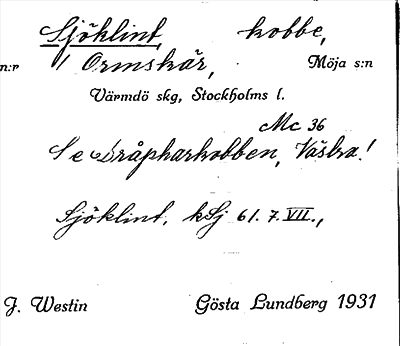 Sjöklint, kobbe,
n:r / Ormskär, Möja s:n
Värmdö skg, Stockholms l.
Mc 36
Se Dråpharkobben, Västra!
Sjöklint, kSj 61. 7. VII.,
J. Westin Gösta Lundberg 1931